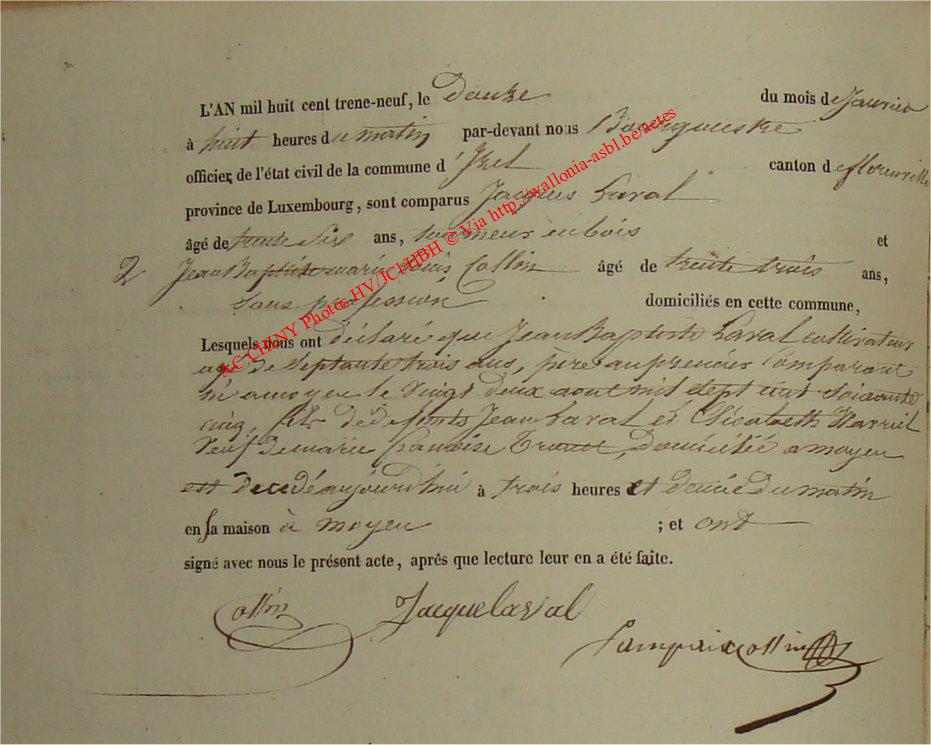 L'AN mil huit cent trene-neuf, le Douze du mois de Janvier
à huit heures du matin par-devant nous Bourguestre
officier de l'état civil de la commune d'Izel canton de florenville
province de Luxembourg, sont comparus Jacques Laval
âgé de trente Six ans, tourneur en bois et
2 Jean Baptiste marie Collin âgé de trente trois ans,
Sans profession domiciliés en cette commune,
Lesquels nous ont déclaré que Jean Baptiste Laval cultivateur
agé de Septante trois ans, père au premier Comparant
né a moyen le vingt deux aout mil sept cent soixante
cinq, fils de défunts Jean Laval et Elisabeth
Veuf de marie françoise, domicilié a moyen
est Decedé aujourd'hui à trois heures et demie du matin
en sa maison à moyen ; et ont
signé avec nous le présent acte, après que lecture leur en a été faite.
Collin Jacque laval
Lampaix collin
AC CHINY Photos HV/JCl/HBH © Via http://wallonia-asbl.be/actes